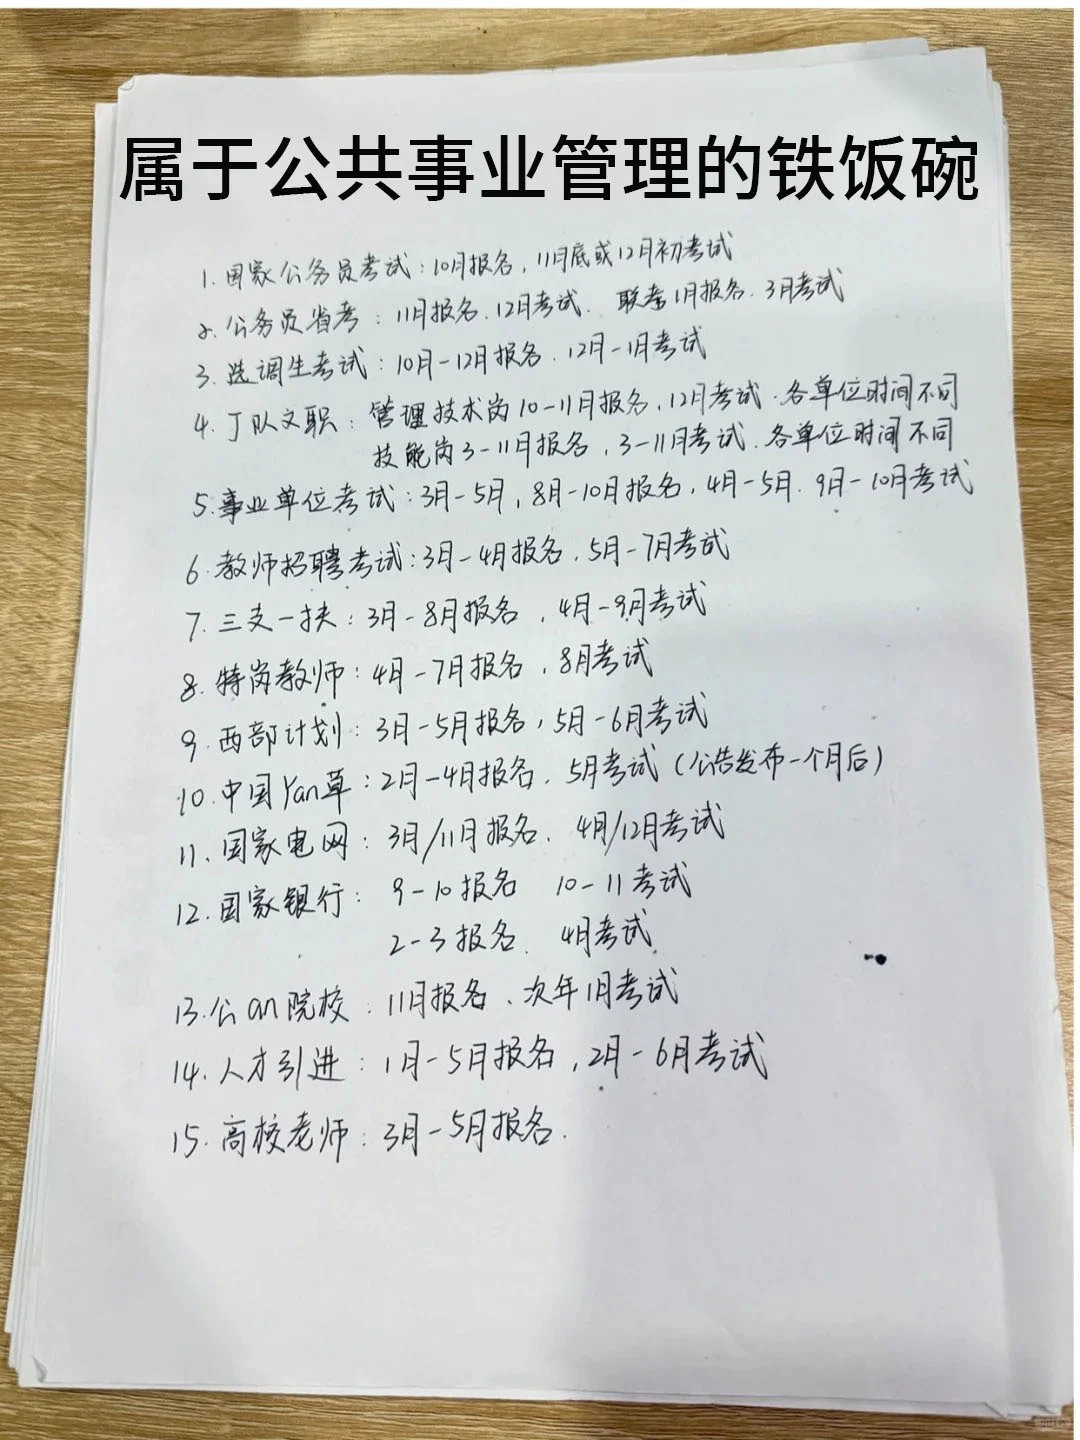 属于公共事业管理的铁饭碗
1. 国家公务员考试：10月报名，11月底或12月初考试
2. 公务员省考：11月报名、12月考试. 联考1月报名. 3月考试
3. 选调生考试：10月-12月报名. 12月-1月考试
4. 丁队文职：管理技术岗10-11月报名，12月考试. 各单位时间不同
技能岗3-11月报名，3-11月考试. 各单位时间不同
5. 事业单位考试：3月-5月，8月-10月报名，4月-5月. 9月-10月考试
6. 教师招聘考试：3月-4月报名. 5月-7月考试
7. 三支一扶：3月-8月报名，4月-9月考试
8. 特岗教师：4月-7月报名，8月考试
9. 西部计划：3月-5月报名，5月-6月考试
10. 中国Yan草：2月-4月报名. 5月考试（公告发布一个月后）
11. 国家电网：3月/11月报名. 4月/12月考试
12. 国家银行：9-10报名 10-11考试
2-3报名. 4月考试
13. 公an院校：11月报名、次年1月考试
14. 人才引进：1月-5月报名，2月-6月考试
15. 高校老师：3月-5月报名.